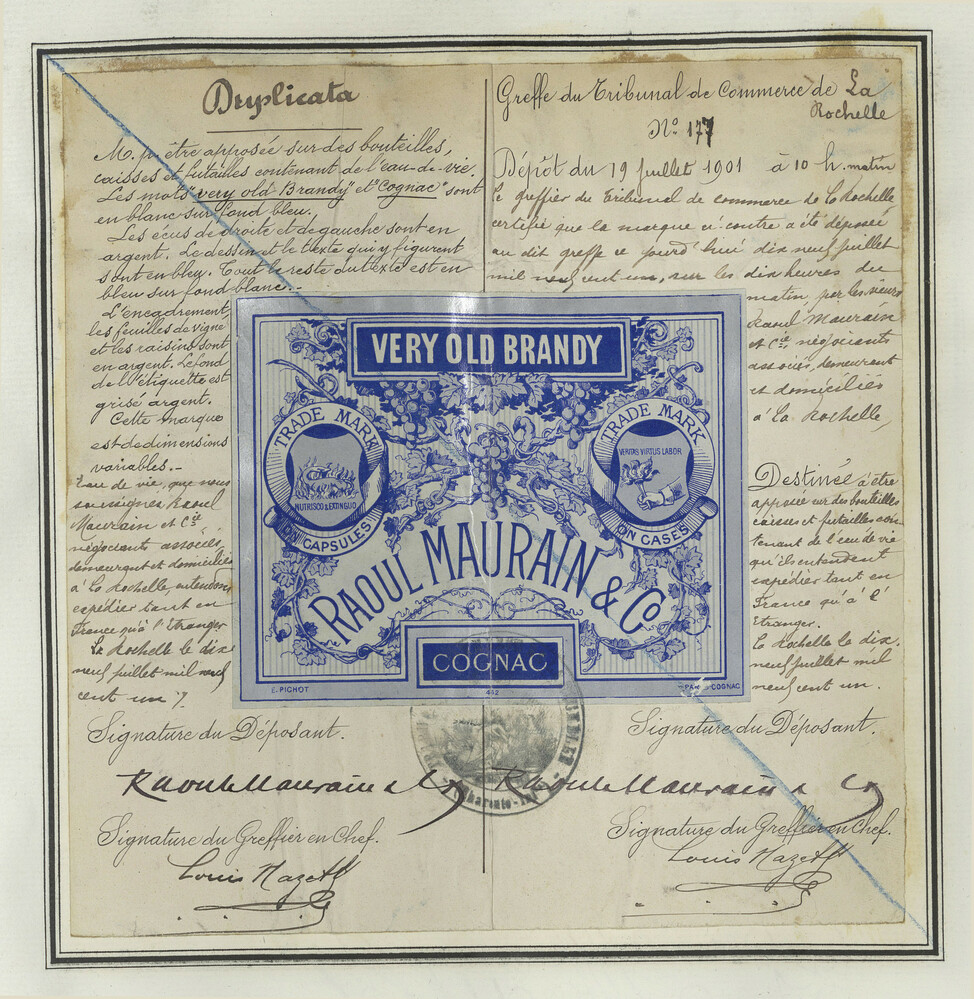 Duplicata
M. p. être apposée sur des bouteilles,
caisses et futailles contenant de l'eau-de-vie.
Les mots "very old Brandy" et "Cognac" sont
en blanc sur fond bleu.
Les écus de droite et de gauche sont en
argent. Le dessin et le texte qui y figurent
sont en bleu. Tout le reste du texte est en
bleu sur fond blanc.-
L'encadrement,
les feuilles de vigne
et les raisins sont
en argent. Le fond
de l'étiquette est
grisé argent.
Cette marque
est de dimensions
variables.-
Eau de vie, que nous
soussignés Raoul
Maurain et Cie
négociants associés,
demeurant et domiciliés
à La Rochelle, entendons
expédier tant en
France qu'à l'Etranger
La Rochelle le dix
neuf juillet mil neuf
cent un
Signature du Déposant.
Raoul Maurain & Co
Signature du Greffier en Chef.
Louis Nazett
Greffe du Tribunal de Commerce de La
Rochelle
No 177
Dépôt du 19 Juillet 1901 à 10 h. matin
Le greffier du Tribunal de commerce de La Rochelle
certifie que la marque ci contre a été déposée
au dit greffe ce jourd'hui dix neuf juillet
mil neuf cent un, sur les dix heures du
matin, par les sieurs
Raoul Maurain
et Cie négociants
associés, demeurant
et domiciliés
à La Rochelle,
Destinée à être
apposée sur des bouteilles
caisses et futailles con-
tenant de l'eau de vie
qu'ils entendent
expédier tant en
France qu'à l'
Etranger.
La Rochelle le dix.
neuf juillet mil
neuf cent un.
Signature du Déposant.
Raoul Maurain & Co
Signature du Greffier en Chef.
Louis Nazett
VERY OLD BRANDY
TRADE MARK
NUTRISCO & EXTINGUO
ON CAPSULES
TRADE MARK
VERITAS VIRTUS LABOR
ON CASES
RAOUL MAURAIN & Co
COGNAC
E. PICHOT
442
COGNAC